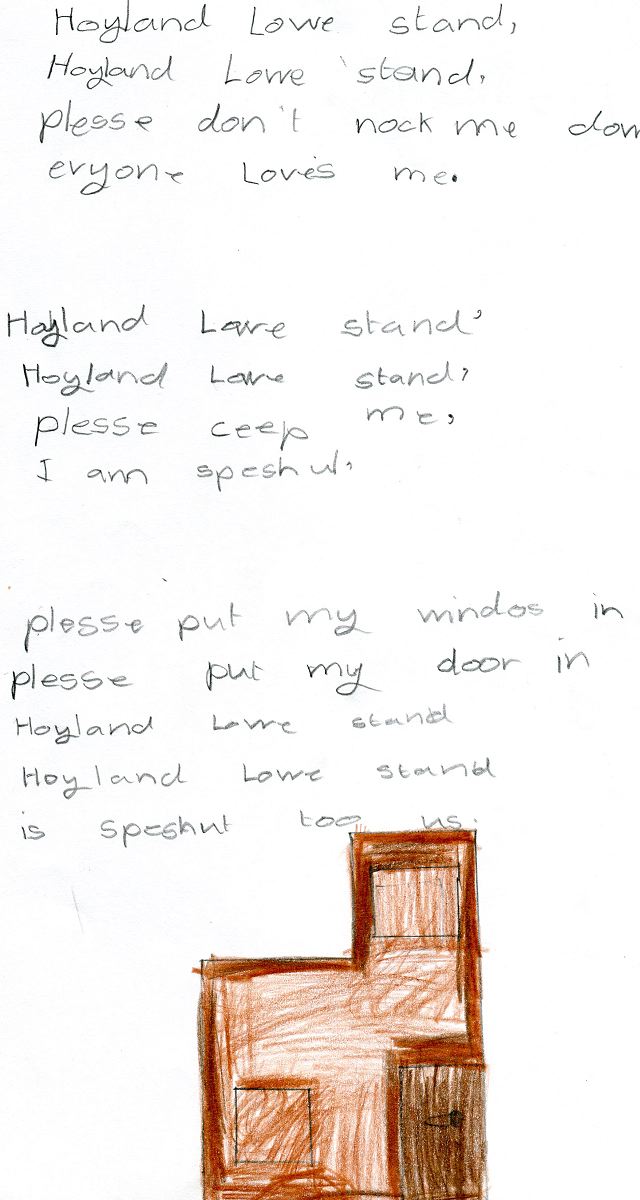 Hoyland Lowe stand,
Hoyland Lowe stand,
plesse don't nock me dow
eryone Loves me.
Hoyland Lowe stand,
Hoyland Lowe stand,
plesse ceep me,
I am speshul,
plesse put my windos in
plesse put my door in
Hoyland Lowe stand
Hoyland Lowe stand
is speshul too us.